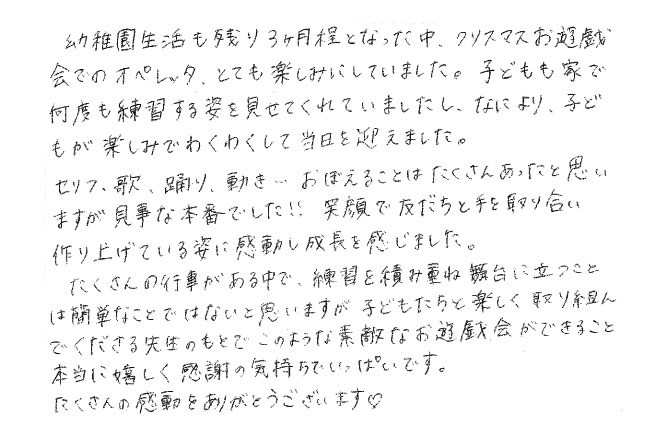 幼稚園生活も残り3ヶ月程となった中、クリスマスお遊戯
会でのオペレッタ、とても楽しみにしていました。子どもも家で
何度も練習する姿を見せてくれていましたし、なにより、子ど
もが楽しみでわくわくして当日を迎えました。
セリフ、歌、踊り、動き… おぼえることはたくさんあったと思い
ますが見事な本番でした!! 笑顔で友だちと手を取り合い
作り上げている姿に感動し成長を感じました。
たくさんの行事がある中で、練習を積み重ね舞台に立つこと
は簡単なことではないと思いますが子どもたちと楽しく取り組ん
でくださる先生のもとでこのような素敵なお遊戯会ができること
本当に嬉しく感謝の気持ちでいっぱいです。
たくさんの感動をありがとうございます♡